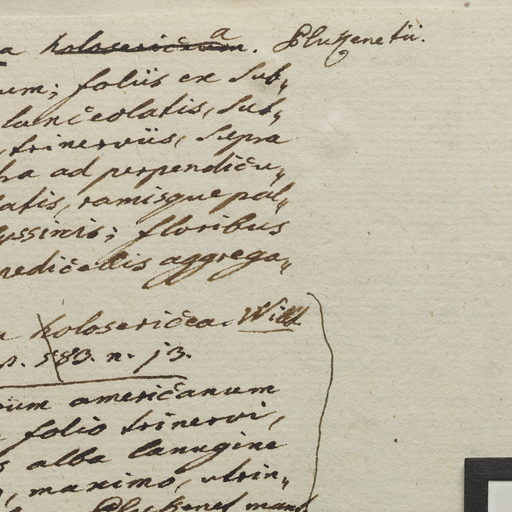 a holosericeum a. Plukenetii.
um; foliis ex sub„
lanceolatis, sub„
trinerviis, supra
ad perpendicu„
latis, ramisque pal„
floribus
pedicellis aggrega„
a holosericea. Willd
p. 583. n. 13.
um americanum
folio trinervi,
s alba lanugine
maximo, utrin„
Plukenet mant